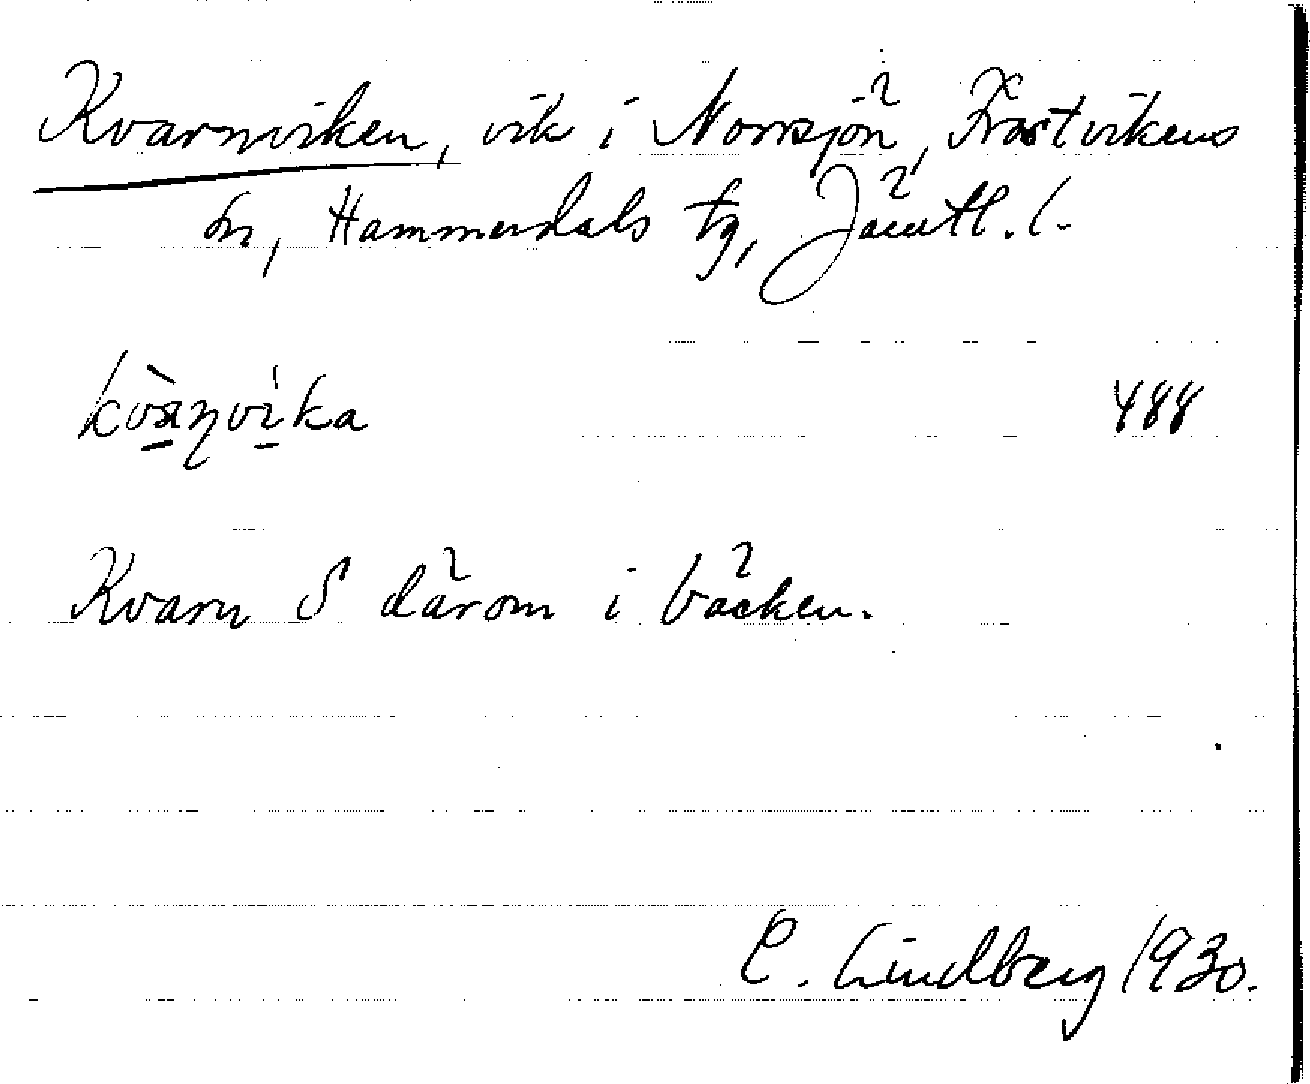 Kvarnviken, vik i Norrsjön, Frostvikens
sn, Hammerdals tg, Jämtl. l.
488
Kvarn S därom i bäcken.
E. Lindberg 1930.